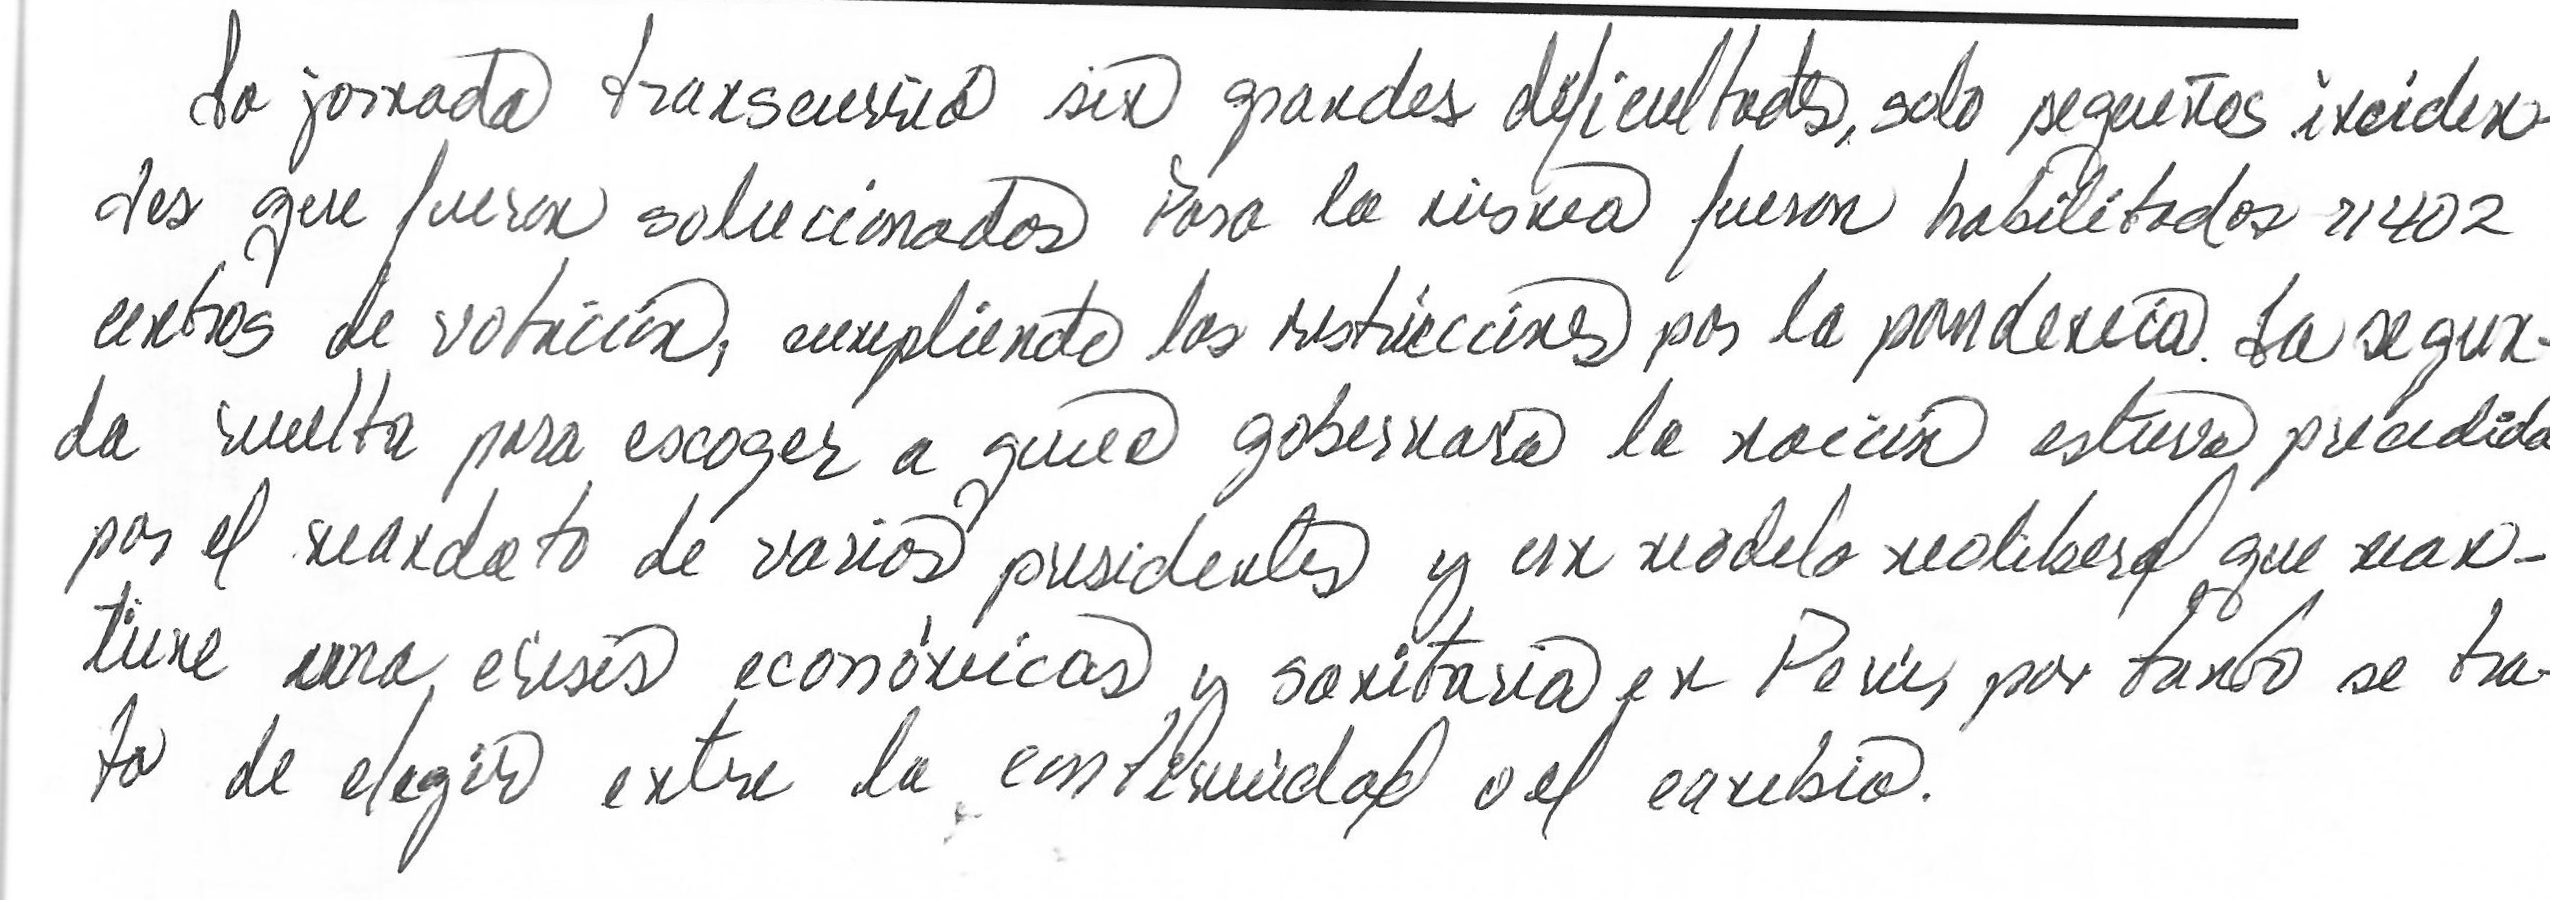 La jornada transcurrió sin grandes dificultades, solo pequeños inciden-
tes que fueron solucionados Para la misma fueron habilitados 11402
centros de votación, cumpliendo las restricciones por la pandemia. La segun-
da vuelta para escoger a quien gobernara la nación estuvo precedida
por el mandato de varios presidentes y un modelo neoliberal que man-
tiene una crisis económicas y sanitaria en Perú, por tanto se tra-
ta de elegir entre la continuidad o el cambio.